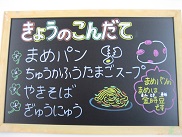 きょうのこんだて
まめパン
ちゅうかふうたまごスープ
やきそば
ぎゅうにゅう
まめパンの
まめは
金時豆
です